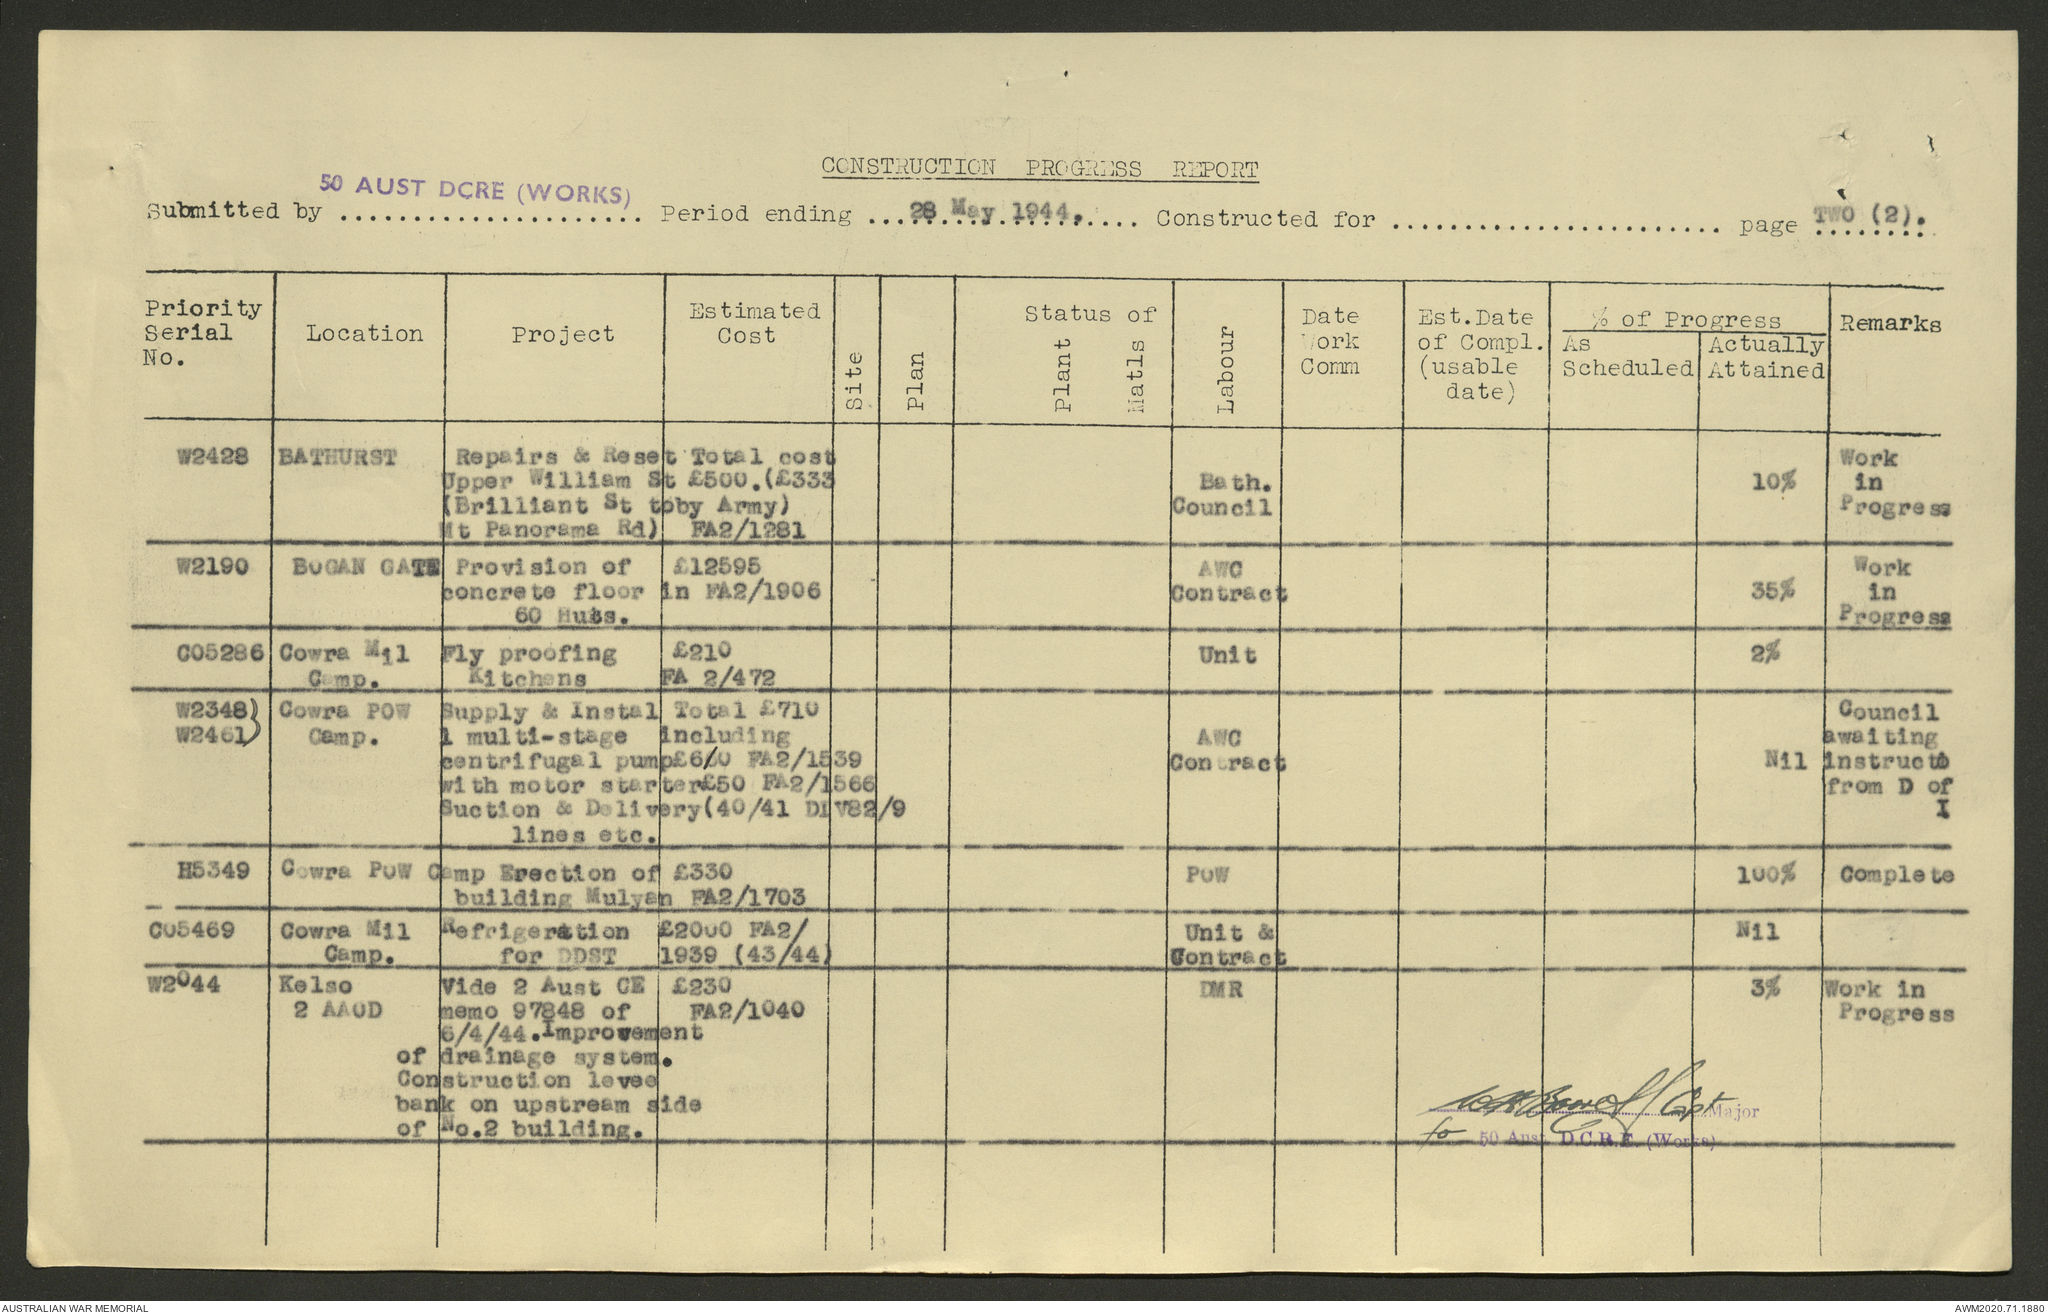 CONSTRUCTION PROGRESS REPORT
Submitted by 50 AUST DCRE (WORKS) Period ending 28 May 1944. Constructed for page TWO (2).
Priority Serial No. Location Project Estimated Cost Site Plan Status of Plant Matls Labour Date Work Comm Est.Date of Compl. (usable date) % of Progress As Scheduled Actually Attained Remarks
W2428 BATHURST Repairs & Reset Total cost Work
Upper William St £500.(£333 Bath. 10% in
(Brilliant St to by Army) Council Progress
Mt Panorama Rd) FA2/1281
W2190 BOGAN GATE Provision of £12595 AWC Work
concrete floor in FA2/1906 Contract 35% in
60 Huts. Progress
CO5286 Cowra Mil Fly proofing £210 Unit 2%
Camp. Kitchens FA 2/472
W2348) Cowra POW Supply & Instal Total £710 Council
W2461) Camp. 1 multi-stage including AWC awaiting
centrifugal pump £660 FA2/1539 Contract Nil instructs
with motor starter £50 FA2/1566 from D of
Suction & Delivery (40/41 DIV82/9 I
lines etc.
H5349 Cowra POW Camp Erection of £330 POW 100% Complete
building Mulyan FA2/1703
CO5469 Cowra Mil Refrigeration £2000 FA2/ Unit & Nil
Camp. for DDST 1939 (43/44) Contract
W2044 Kelso Vide 2 Aust CE £230 DMR 3% Work in
2 AAOD memo 97848 of FA2/1040 Progress
6/4/44. Improvement
of drainage system.
Construction levee
bank on upstream side
of No.2 building.
Capt Major
for 50 Aust D.C.R.E. (Works)
AUSTRALIAN WAR MEMORIAL
AWM2020.71.1880